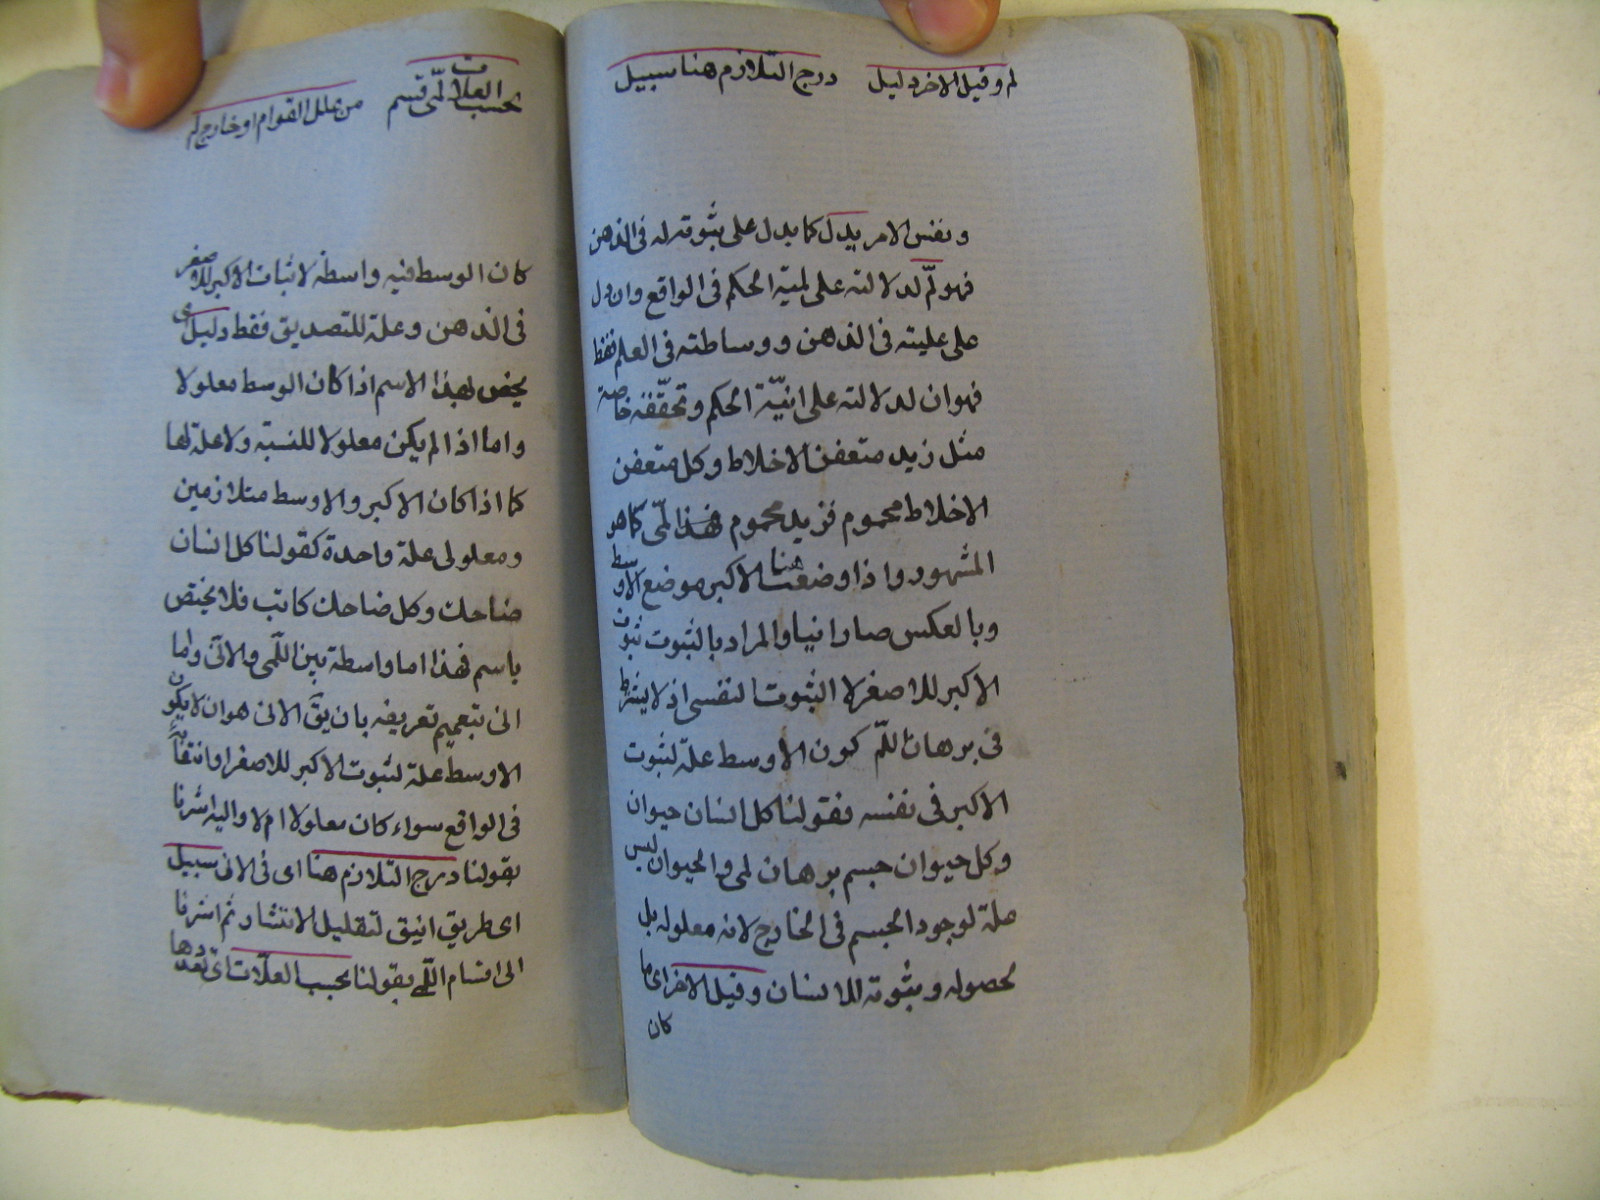 لم وقيل الاخر دليل درج التلازم هنا سبيل
ونفس الامر يدل كما يدل على ثبوته له فى الذهن
فهو لمّ لدلالته على لمية الحكم فى الواقع وان دل
على عليته فى الذهن ووساطته فى العلم فقط
فهو ان لدلالته على انيّة الحكم وتحقّقه خاصة
مثل زيد متعفن الاخلاط وكل متعفن
الاخلاط محموم فزيد محموم فهذا لمّى كما هو
المشهور واذا وضعت هنا الاكبر موضع الاوسط
وبالعكس صار انيا والمراد بالثبوت ثبوت
الاكبر للاصغر لا الثبوت النفسى اذ لا يشترط
فى برهان اللمّ كون الاوسط علة لثبوت
الاكبر فى نفسه فقولنا كل انسان حيوان
وكل حيوان جسم برهان لمى والحيوان ليس
علة لوجود الجسم فى الخارج لانه معلوله بل
لحصوله وثبوته للانسان وقيل الاخر اى ما
كان
بحسب العلات لمّى قسم من علل القوام او خارج لم
كان الوسط فيه واسطة لاثبات الاكبر للاصغر
فى الذهن وعلة للتصديق فقط دليل اى
يخص بهذا الاسم اذا كان الوسط معلولا
واما اذا لم يكن معلولا للنسبة ولا علة لها
كما اذا كان الاكبر والاوسط متلازمين
ومعلولى علة واحدة كقولنا كل انسان
ضاحك وكل ضاحك كاتب فلا يختص
باسم فهذا اما واسطة بين اللّمى والانّى واما
انى بتعميم تعريفه بان يقّ الانى هو ان لا يكون
الاوسط علة لثبوت الاكبر للاصغر او انتفائه
فى الواقع سواء كان معلولا ام لا واليه اشرنا
بقولنا درج التلازم هنا اى فى الانى سبيل
اى طريق انيق لتقليل الانتشار ثم اشرنا
الى اقسام اللّمى بقولنا بحسب العلّات اى تعددها